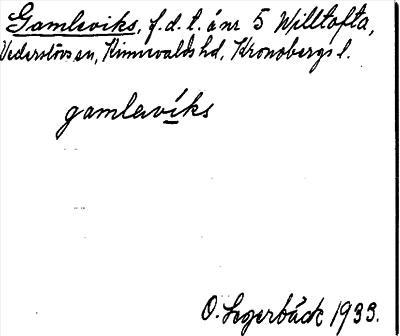 Gamleviks, f.d. t. å nr 5 Willtofta,
Vederslövs sn, Kinnevalds hd, Kronobergs l.
gamlevíks
O. Segerbäck 1933.